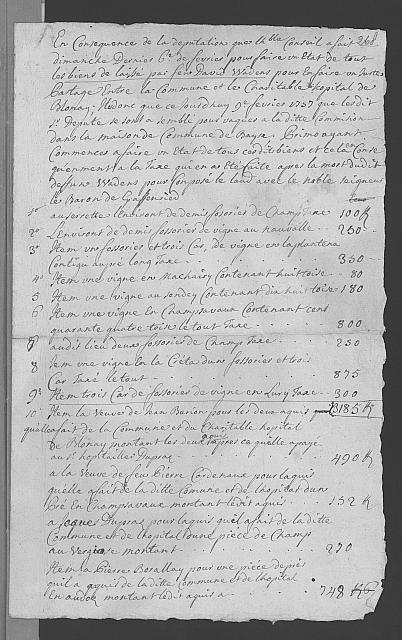 En Consequence de la deputation que th.ble Conseil a fait
dimanche Dernier 6e de fevrier pour faire un Etat de tous
les biens de laisse par feu David Wadens pour En faire un Juste
Partage Entre la Commune et le Charitable hopital de
Blonay, Ils donc que ce Jourdhuy 9e fevrier 1757 que les dit
Srs Deputé se sont a semblé pour vaquer a la ditte Commision
dans la maison de Commune de Bayse
Commences a faire un Etat de tous ces dit biens et cela Conse
quenment a la Taxe qui en a Eté faite apres la mort du dit
deffunt Wadens pour Composé le laud avec le Noble seigneur
le Baron de
1o au serrette l'environt de demis fossories de Champ Taxe 100 R
2o L'environt de demis fossories de vigne au nauvalle - 250 -
3o Item vne fossories et trois Car, de vigne en la plantera
Contigu au pré long Taxe - - 350 - -
4o Item vne vigne en Machairy Contenant huit toise - 80
5 Item vne vigne au sondey Contenant dix huit toise 180
6 Item vne vigne en Champsavaux Contenant cens
quarante quatre toise le tout Taxe - - 800
au dit lieu deux fossories de Champ Taxe - 250
8 Item vne vigne en la Crêta d'une fossories et trois
Car Taxé le tout - - 875
9o Item trois Car de fossories de vigne en Lury Taxe - 300
3185 R
10o Item la Veuve de Jean Barion pour les deux aquis
quelle a fait de la Commune et du Charitable hopital
De Blonay montant les deux aquis apres ce quelle a payé
au Sr hopitallier Dupraz - - 490 R
a la Veuve de feu Pierre Cardenaux pour laquis
quelle a fait de la ditte Comune et de lhopital d'un
Pré en Champsavaux montant le dit aquis - - 152 R
a Jaques Dupraz pour laquis quel a fait de la ditte
Commune et de lhopital d'une piece de Champs
au Vergier montant - - 270
Item a Pierre Borallay pour une pièce de prés
quil a aquis de la ditte Commune et de lhopital
En audoz montant le dit aquis a - 748 R